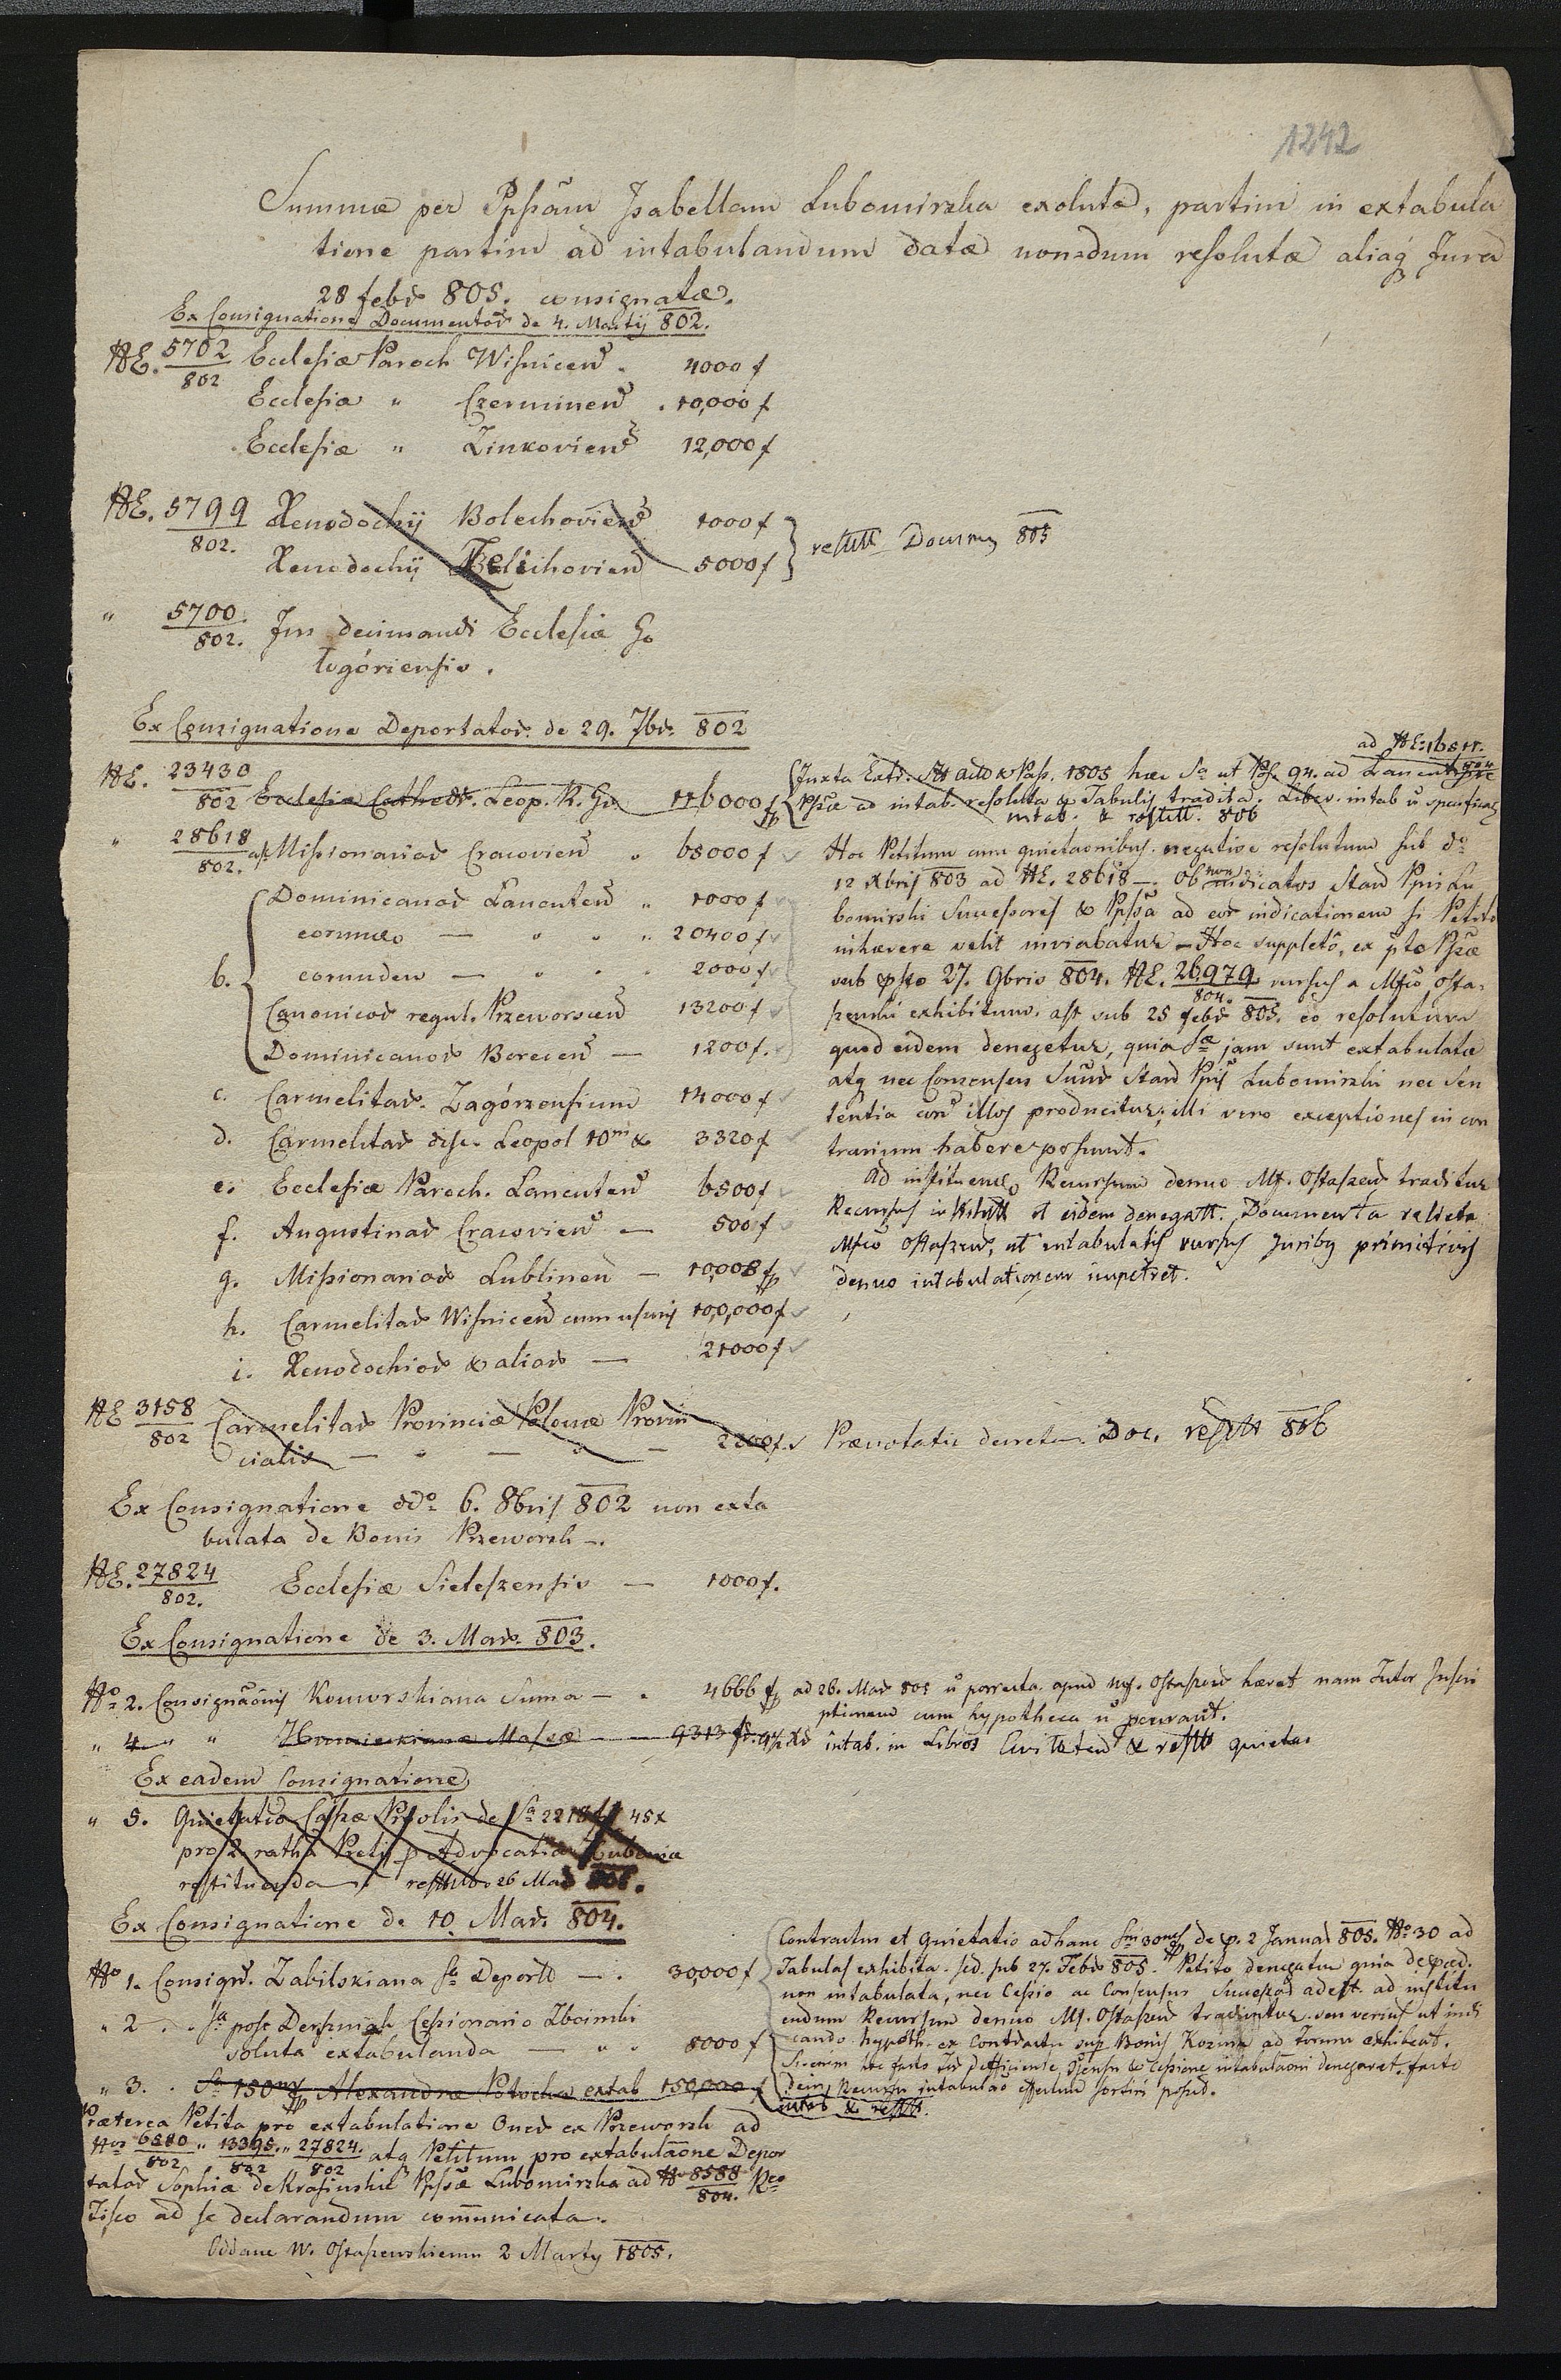 1242
Summæ per Ppssam Isabellam Lubomirska exolutæ, partim in extabula
tione partim ad intabulandum datæ nondum resolutæ aliaq Jura
28 febr 805. consignatæ.
Ex Consignatione Documentor de 4. Martij 802.
NE. 5702/802 Ecclesiæ Paroch Wisnicen . 4000 f
Ecclesiæ " Czerminen . 10,000 f
Ecclesiæ " Zinkovien 12,000 f
NE. 5799/802. Xenodochij Bolechovien 1000 f
Xenodochij 5000 f } restitt Docum 805
" 5700./802. Jus decimandi Ecclesiæ Go
łogóriensis.
Ex Consignatione Deportator. de 29. 7br. 802
NE. 23430/802 Ecclesiæ Cathedr. Leop. R. Gr. 116000 f
" 28618/802. a Missionarior Cracovien " 65000 f
Dominicanor Lancuten " 1000 f
eorumdo — " " " 20400 f
b. eorumdem — " " " 2000 f
Canonicor regul. Przeworscen 13200 f
Dominicanor Borecen — 1200 f.
c. Carmelitar. Zagórzensium 14000 f
d. Carmelitar disc. Leopol 10mi & 3320 f
e. Ecclesiæ Paroch. Lancuten 6500 f
f. Augustinar Cracovien — 500 f
g. Missionarior Lublinen — 10,008 f
h. Carmelitar Wisnicen cum usuris 100,000 f
i. Xenodochior & alior — 21000 f
ad NE: 16811./804
Juxta Extr. 1805 hæc Sa ut Pos. 94. ad
ad intab. resoluta & Tabulis tradita. Liber. intab
intab. & restitt. 806
Hoc Petitum cum quietaonibus. negative resolutum sub do
12 Xbris 803 ad NE. 28618 —. Ob non indicatos Stan Ppis Lu
bomirski Successores & Ppssa ad eor indicationem si Petito
inhærere velit inviabatur — Hoc suppleto, ex pte Pssæ
sub pso 27. 9bris 804. NE. 26979/804. rursus a Mfco Osta
szewski exhibitum. ast sub 25 febr 805. eo resolutum
quod eidem denegetur, quia Sæ jam sunt extabulatæ
atq nec Consensus Suc Stan Ppis Lubomirski nec Sen
tentia con illos producitur; illi vero exceptiones in con
trarium habere possunt.
Ad instituend Recursum denuo Mf. Ostaszew traditur
Recursus institutt et eidem denegatt. Documenta relicta
Mfco Ostaszew, ut intabulatis rursus Juribq primitivis
denuo intabulationem impetret.
NE 3158/802 Carmelitar Provinciæ Polonæ Provin
cialis — " — " — 2200 f. Prænotatio decreta. Doc. restitt 806
Ex Consignatione ddo 6. 8bris 802 non exta
bulata de Bonis Przeworsk —.
NE. 27824/802. Ecclesiæ Sieteszensis — 1000 f.
Ex Consignatione de 3. Mar. 803.
No 2. Consignaonis Komorskiana Suma — . 4666 f ad 26. Mar 805 n porrecta. apud Mf. Ostaszew hæret nam Tutor Inscri
ptionem cum hypotheca n
" 4. " " Massæ — 9313 fr. intab. in Libros Civitaten & restitt quieta.
Ex eadem Consignatione
" 5. Quietatio Cassæ de Sa 2218 f 45x
pro 2 ratha Pretij p Advocatia
restituenda. restitt. 26 Mar 806.
Ex Consignatione de 10 Mar. 804.
No 1. Consign. Zabilskiana Sa Deportd — . 30,000 f
" 2 . . Sa post Cessionario Zboinski
soluta extabulanda — " . 8000 f
" 3. . Sa 150 Alexandræ Potocka extab 150,000 f
Contractus et Quietatio ad hanc Sm 30 de p. 2 Januar 805. No 30 ad
Tabulas exhibita. sed. sub 27. Febr 805. Petito denegatur quia
non intabulata, nec Cessio ac Consensus Successor adest. ad institu
endum Recursum denuo Mf. Ostaszew traditur. seu verius ut indi
cando hypoth. ex Contractu sup Bonis Kozina ad Forum exhibeat.
intabulaoni denegaret. facto
dein Recursu intabulao effectum sortiri possit.
intab & restitt.
Præterea Petita pro extabulatione Oner ex Przeworsk ad
Nos 6580/802 " 13395/802 " 27824./802 atq Petitum pro extabulaone Depor
tator Sophiæ de Krasinskie Ppssæ Lubomirska ad N 8588/804. Rco
Fisco ad se declarandum communicata.
Oddane W. Ostaszewskiemu 2 Marty 1805.